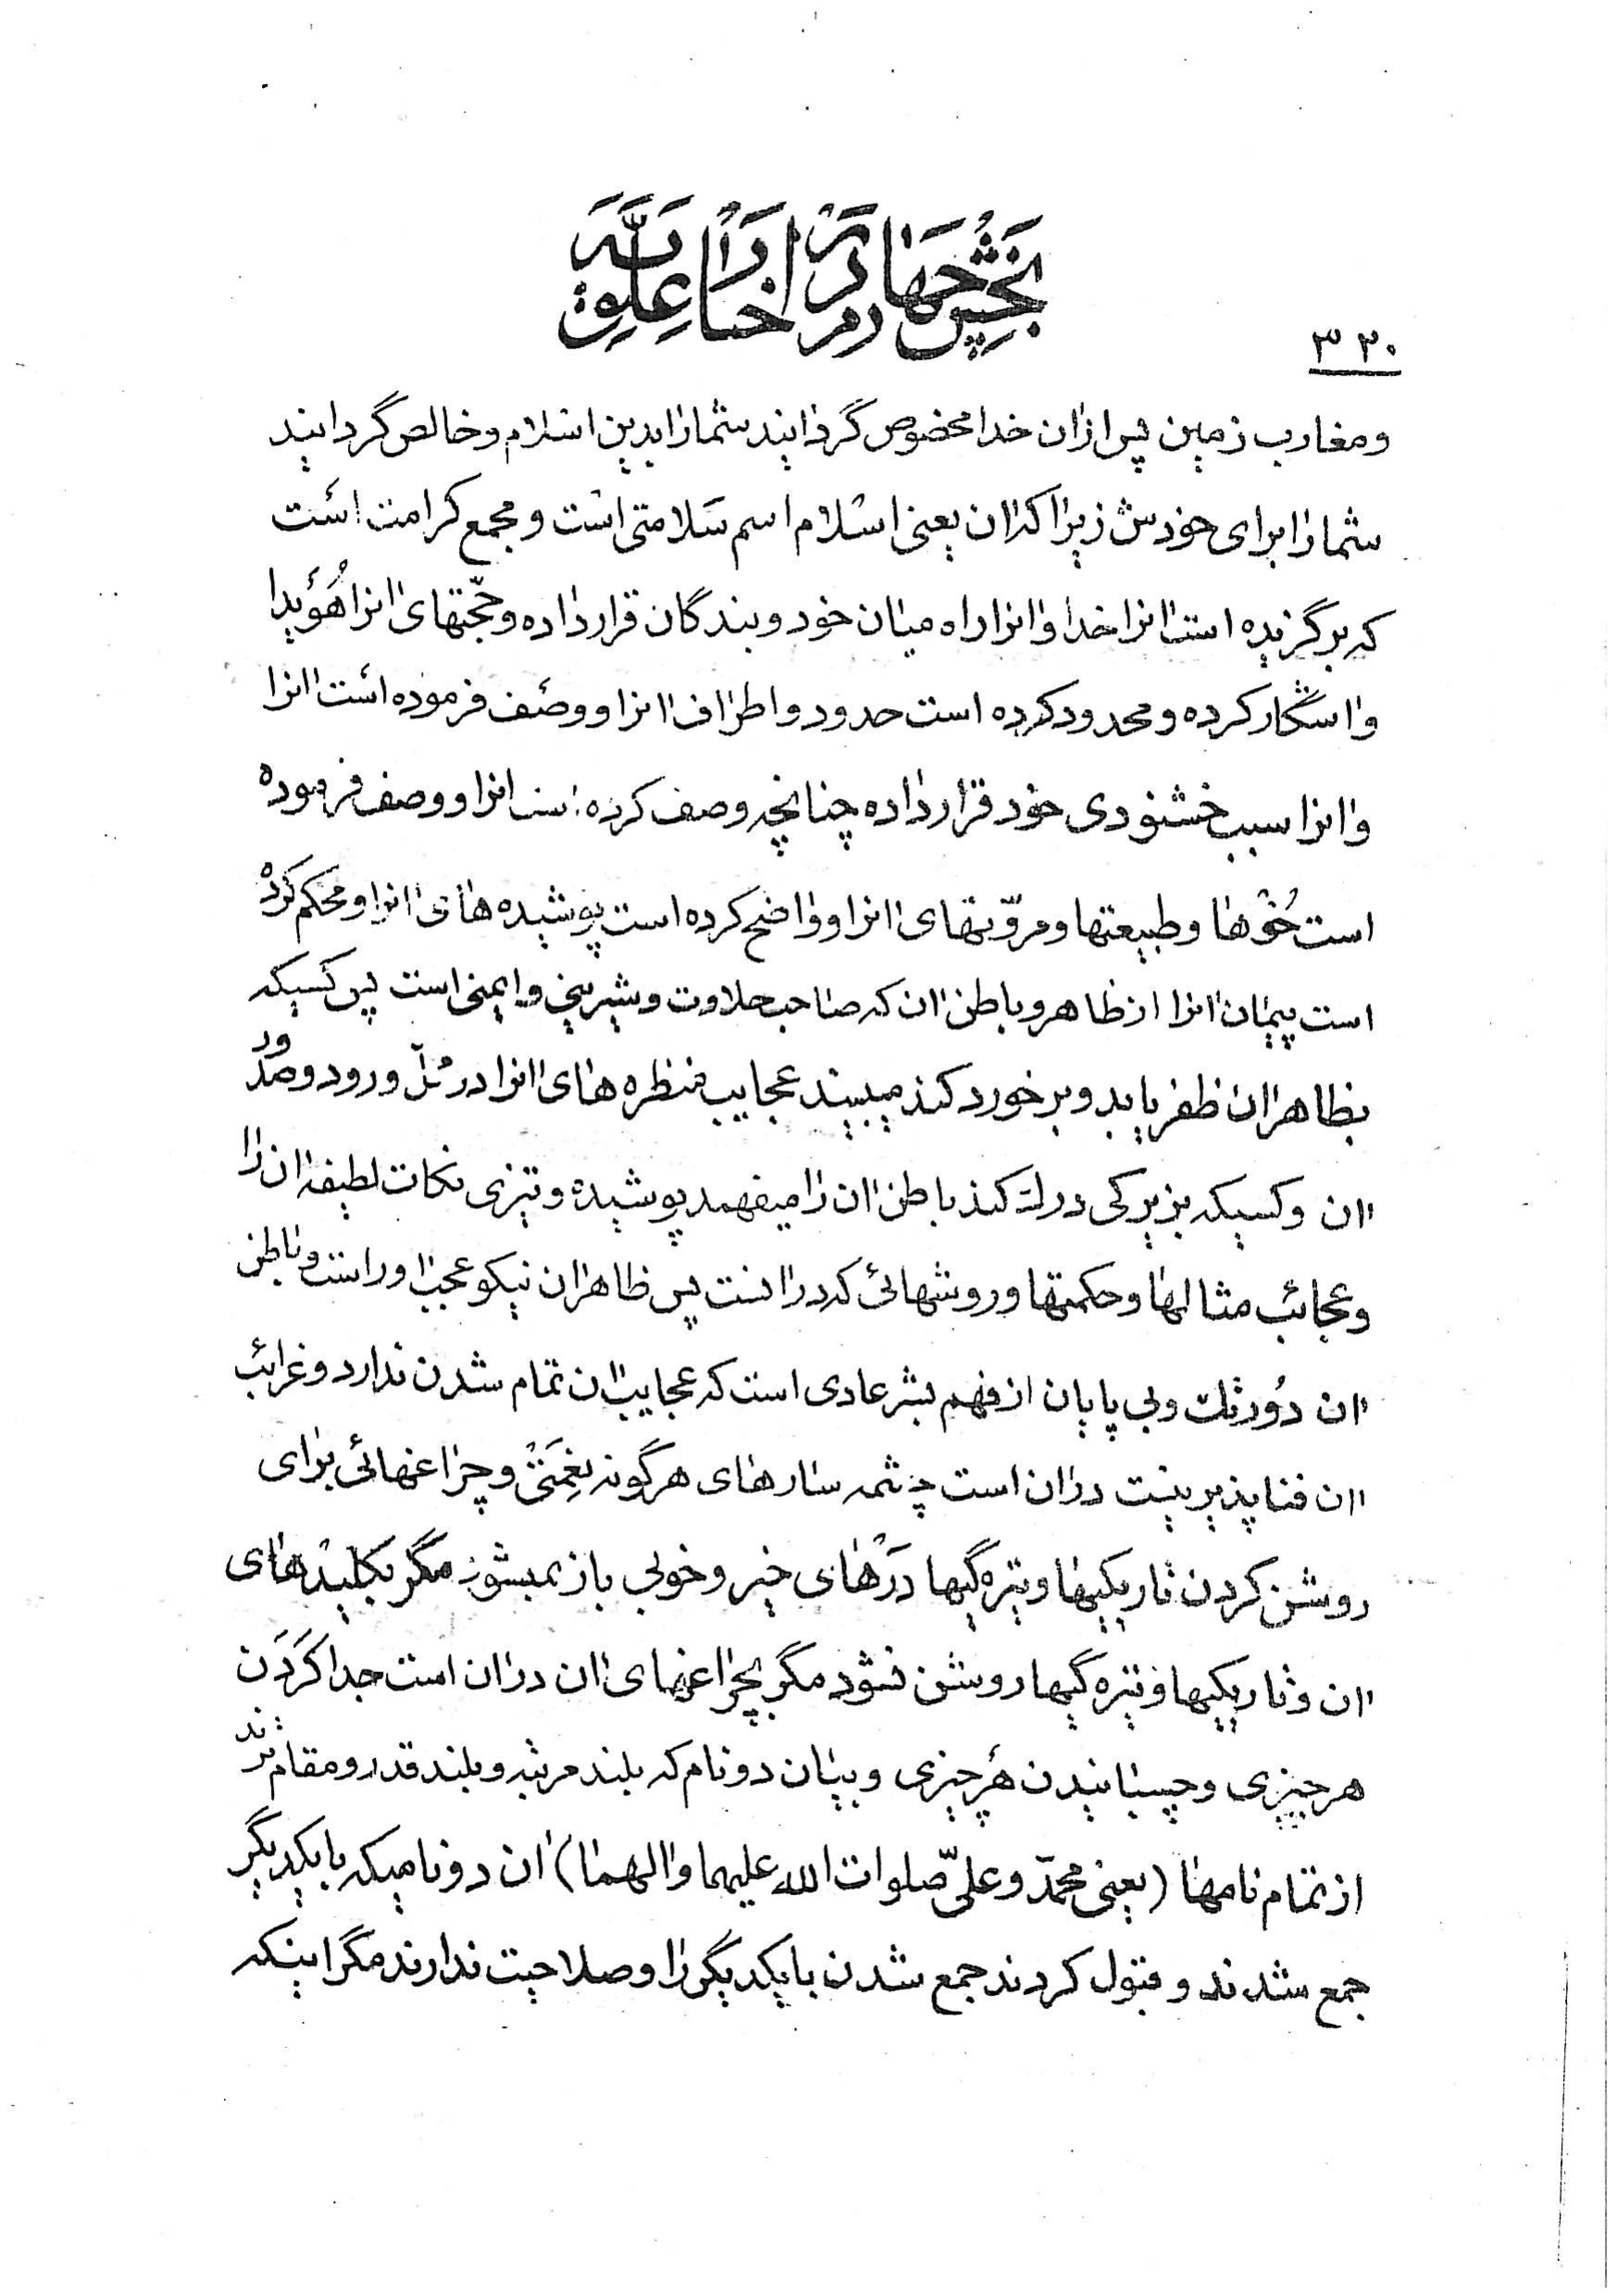 بخش چهارم در اخبار علویه
۳۲۰
و مغارب زمین پس ازان خدا مخصوص گردانید شما را بدین اسلام و خالص گردانید
شما را برای خودش زیرا که ان یعنی اسلام اسم سلامتی است و مجمع کرامت است
که برگزیده است انرا خدا و انرا راه میان خود و بندگان قرار داده و حجّتهای انرا هُوَیدا
و اشکار کرده و محدود کرده است حدود و اطراف انرا و وصف فرموده است انرا
و انرا سبب خشنودی خود قرار داده چنانچه وصف کرده است انرا و وصف فرموده
است خُوْها و طبیعتها و مروّتهای انرا و واضح کرده است پوشیده های انرا و محکم کرده
است پیمان انرا از ظاهر و باطن ان که صاحب حلاوت و شیرینی و ایمنی است پس کسیکه
بظاهر ان ظفر یابد و برخورد کند میبیند عجایب منظره های انرا در محلّ ورود و صدُور
ان و کسیکه بزیرکی درک کند باطن ان را میفهمد پوشیده و تیزی نکات لطیفه ان را
و عجائب مثالها و حکمتها و روشهائی که در انست پس ظاهر ان نیکو عجب اور است و باطن
ان دُور تک و بی پایان از فهم بشر عادی است که عجایب ان تمام شدن ندارد و غرائب
ان فنا پذیر نیست در ان است چشمه سارهای هر گونه نِعْمَتی و چراغهائی برای
روشن کردن تاریکیها و تیره گیها دَرْهای خیر و خوبی باز نمیشود مگر بکلیدهای
ان و تاریکیها و تیره گیها روشن نشود مگر بچراغهای ان در ان است جدا کَرَدَن
هر چیزی و چسبانیدن هر چیزی و بیان دو نام که بلند مرتبه و بلند قدر و مقام ترند
از تمام نامها (یعنی محمّد و علیّ صلوات الله علیهما و الهما) ان دو نامیکه با یکدیگر
جمع شدند و قبول کردند جمع شدن با یکدیگر را و صلاحیت ندارند مگر اینکه